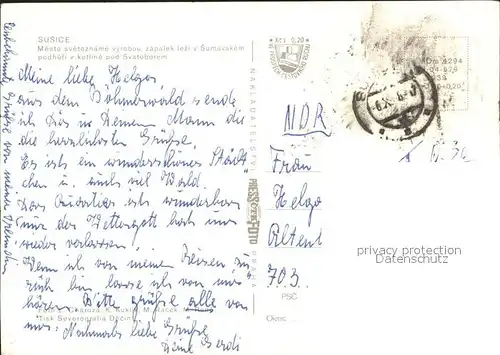 SUŠICE
Město světoznámé výrobou zápalek leží v Šumavském
podhůří v kotlině pod Svatoborem
Meine liebe Helga,
aus dem Böhmerwald sende
ich Dir u. Deinem Mann die
die herzlichsten Grüße.
Es ist ein wunderschönes Städt
chen u. auch viel Wald.
Das Quartier ist wunderbar
nur der Wettergott hat uns
wieder verlassen.
Wenn ich von meinen Reisen zu
rück bin lasse ich von mir
hören. Bitte grüße alle von
mir. Nochmals liebe Grüße
Deine Gerdi
Unbekannte Grüße von meiner Freundin
Tisk Severografia Děčín
NAKLADATELSTVÍ
PRESSFOTO
PRAHA
Kčs 0,20
NDR
Frau
Helga
703
PSČ
Okres
privacy protection
Datenschutz